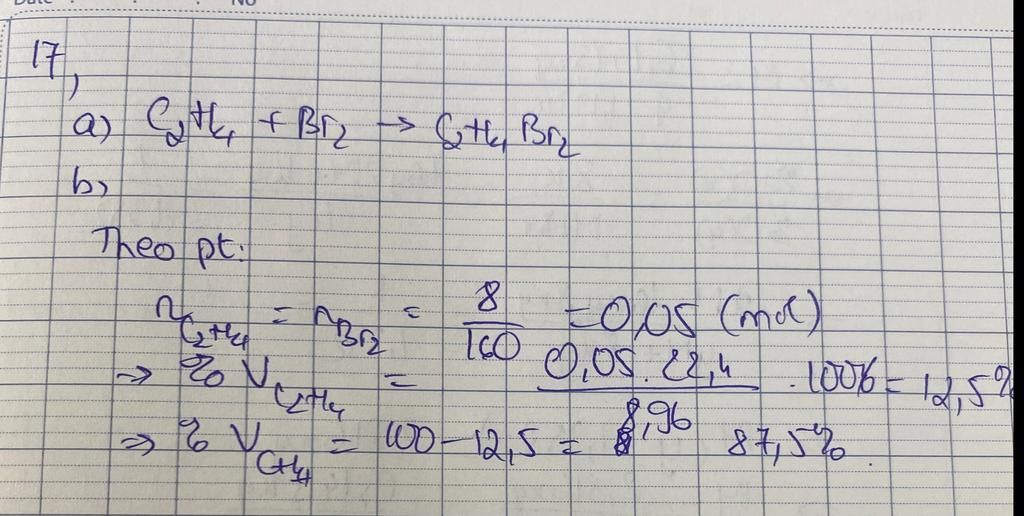 Date : No
17,
a) C2H4 + Br2 → C2H4Br2
b,
Theo pt:
nC2H4 = nBr2 = 8/160 = 0,05 (mol)
→ % VC2H4 = 0,05.22,4/8,96 .100% = 12,5%
→ % VCH4 = 100 - 12,5 = 87,5%.